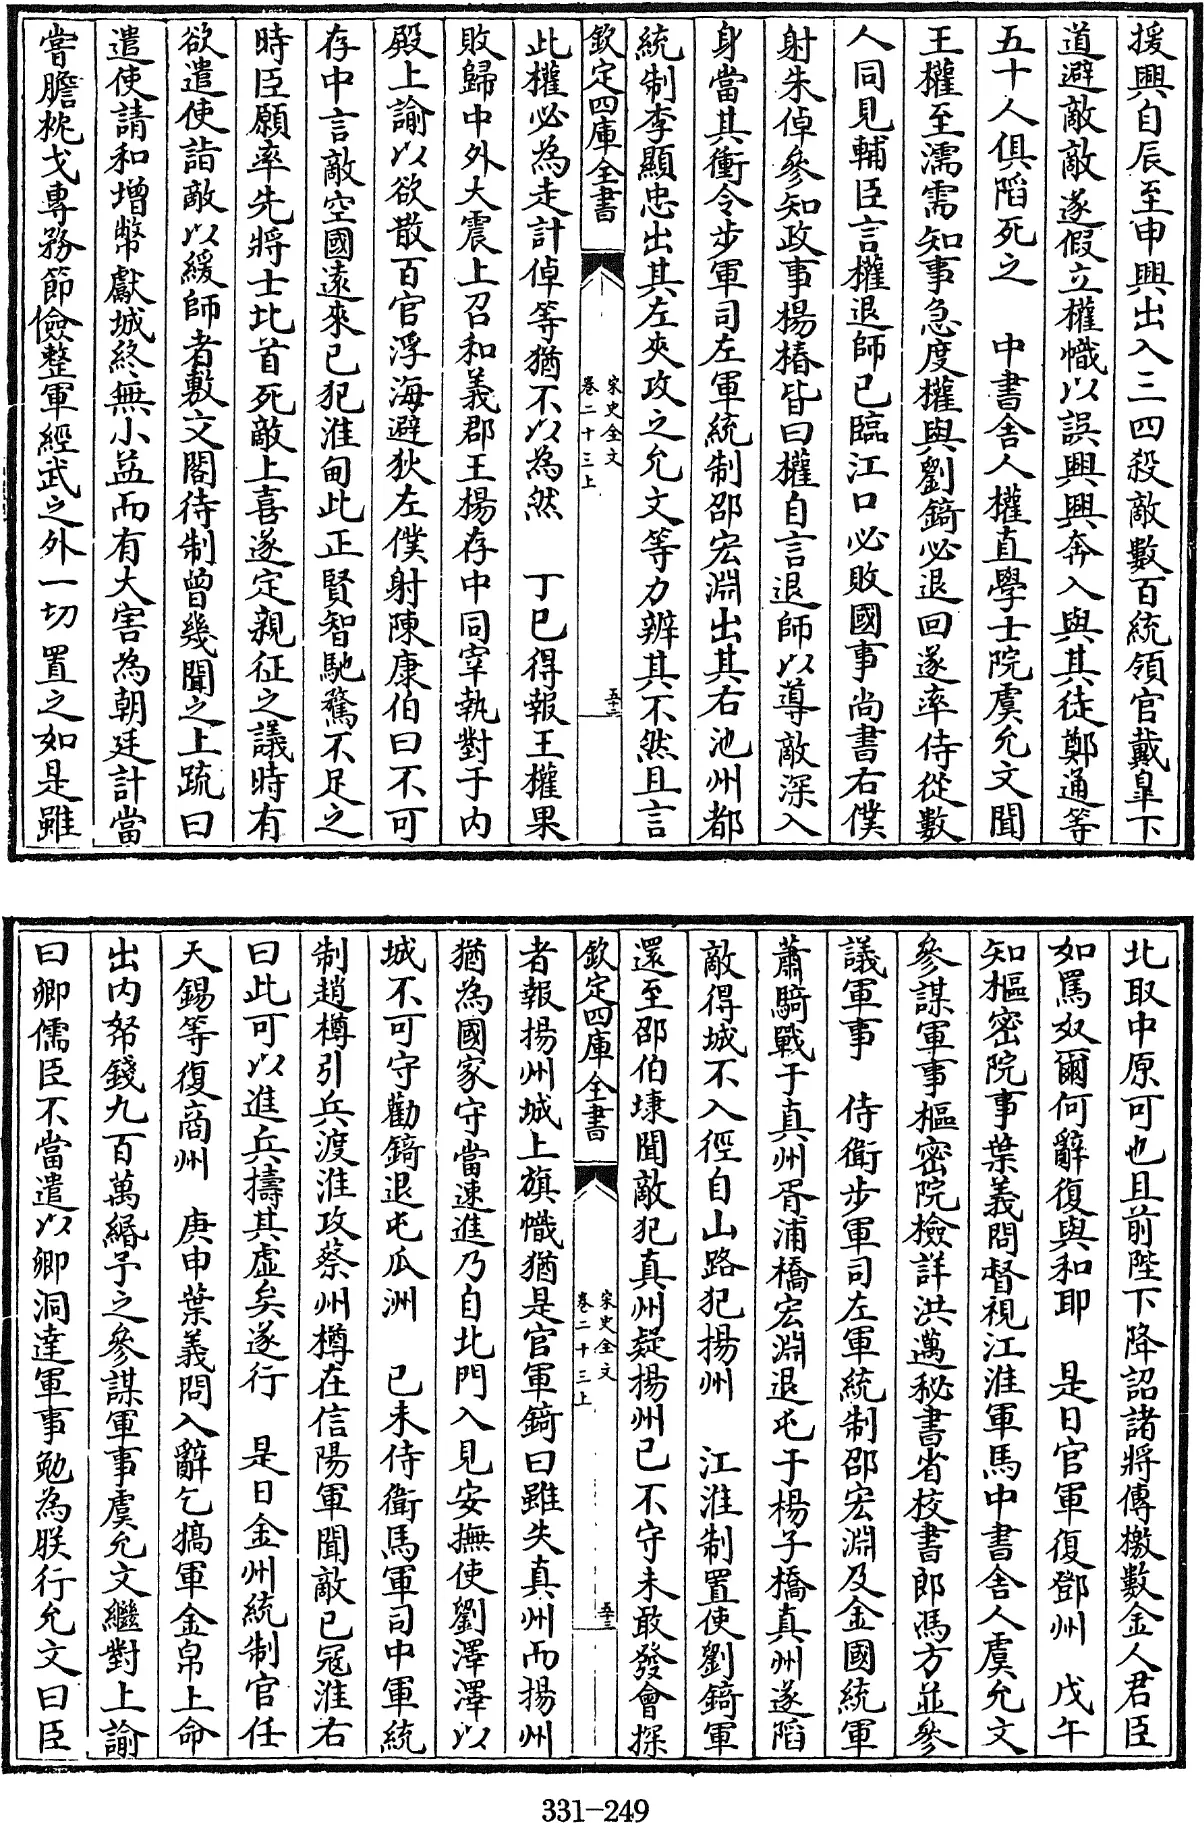 援興自辰至申興出入三四殺敵數百統領官戴臯下
道避敵敵遂假立權幟以誤興興奔入與其徒鄭通等
五十人俱陷死之　中書舍人權直學士院虞允文聞
王權至濡需知事急度權與劉錡必退回遂率侍從數
人同見輔臣言權退師已臨江口必敗國事尚書右僕
射朱倬參知政事楊椿皆曰權自言退師以導敵深入
身當其衝令步軍司左軍統制邵宏淵出其右池州都
統制李顯忠出其左夾攻之允文等力辨其不然且言
欽定四庫全書
宋史全文
卷二十三上
五十二
此權必為走計倬等猶不以為然　丁巳得報王權果
敗歸中外大震上召和義郡王楊存中同宰執對于内
殿上諭以欲散百官浮海避狄左僕射陳康伯曰不可
存中言敵空國遠來已犯淮甸此正賢智馳騖不足之
時臣願率先將士北首死敵上喜遂定親征之議時有
欲遣使詣敵以緩師者敷文閣待制曾幾聞之上疏曰
遣使請和增幣獻城終無小益而有大害為朝廷計當
嘗膽枕戈專務節儉整軍經武之外一切置之如是雖
北取中原可也且前陛下降詔諸將傳檄數金人君臣
如罵奴爾何辭復與和耶　是日官軍復鄧州　戊午
知樞密院事葉義問督視江淮軍馬中書舍人虞允文
參謀軍事樞密院檢詳洪邁秘書省校書郎馮方並參
議軍事　侍衛步軍司左軍統制邵宏淵及金國統軍
蕭騎戰于真州胥浦橋宏淵退屯于楊子橋真州遂陷
敵得城不入徑自山路犯揚州　江淮制置使劉錡軍
還至邵伯埭聞敵犯真州疑揚州已不守未敢發會探
欽定四庫全書
宋史全文
卷二十三上
五十三
者報揚州城上旗幟猶是官軍錡曰雖失真州而揚州
猶為國家守當速進乃自北門入見安撫使劉澤澤以
城不可守勸錡退屯瓜洲　己未侍衛馬軍司中軍統
制趙樽引兵渡淮攻蔡州樽在信陽軍聞敵已寇淮右
曰此可以進兵擣其虛矣遂行　是日金州統制官任
天錫等復商州　庚申葉義問入辭乞犒軍金帛上命
出内帑錢九百萬緡予之參謀軍事虞允文繼對上諭
曰卿儒臣不當遣以卿洞達軍事勉為朕行允文曰臣
331-249